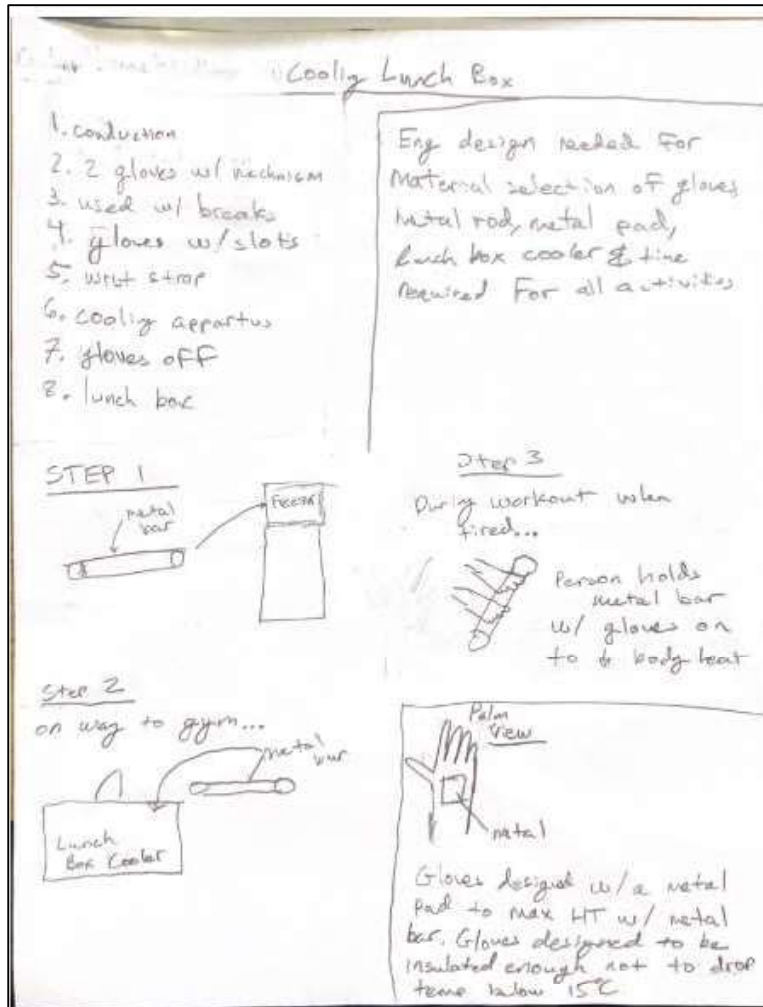 Coolig Lunch Box
1. conduction
2. 2 gloves w/ mechanism
3. used w/ breaks
4. gloves w/ slots
5. wrist strap
6. coolig appartus
7. gloves off
8. lunch box
Eng design needed For
Material selection of gloves
metal rod, metal pad,
lunch box cooler & time
required For all activities
STEP 1
metal
bar
Freezer
Step 3
Durig workout when
tired...
Person holds
metal bar
w/ gloves on
to body heat
Step 2
on way to gym...
metal
bar
Lunch
Box Cooler
Palm
View
metal
Gloves designed w/ a metal
pad to max HT w/ metal
bar. Gloves designed to be
insulated enough not to drop
temp below 15°C